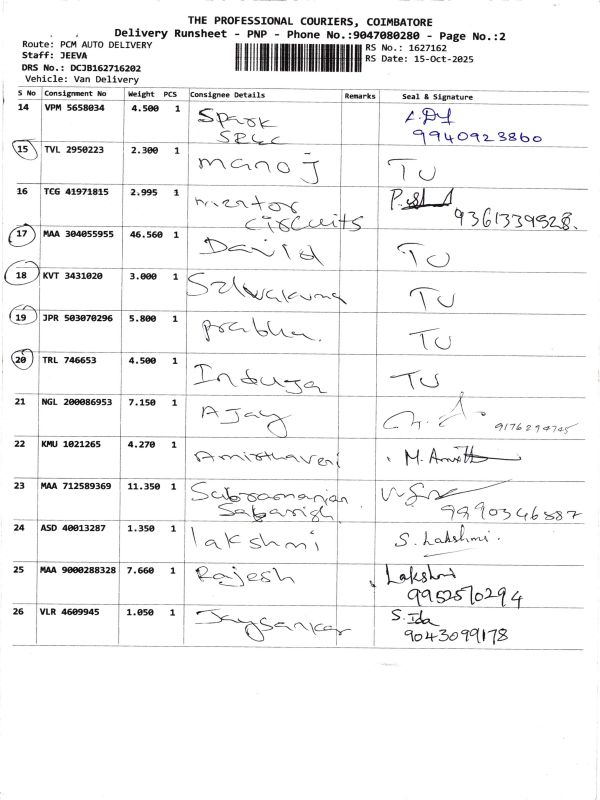 THE PROFESSIONAL COURIERS, COIMBATORE
Delivery Runsheet - PNP - Phone No.:9047080280 - Page No.:2
Route: PCM AUTO DELIVERY
Staff: JEEVA
DRS No.: DCJB162716202
Vehicle: Van Delivery
RS No.: 1627162
RS Date: 15-Oct-2025
S No Consignment No Weight PCS Consignee Details Remarks Seal & Signature
14 VPM 5658034 4.500 1 Spark
9940923860
15 TVL 2950223 2.300 1 manoj TU
16 TCG 41971815 2.995 1 mentor
circuits 9361339528.
17 MAA 304055955 46.560 1 David TU
18 KVT 3431020 3.000 1 Selvakuma TU
19 JPR 503070296 5.800 1 prabhu. TU
20 TRL 746653 4.500 1 Induja TU
21 NGL 200086953 7.150 1 AJay 9176294745
22 KMU 1021265 4.270 1 Amirthaveni M. Amirth
23 MAA 712589369 11.350 1 Subramanian
Sabarish 9990346887
24 ASD 40013287 1.350 1 lakshmi S. Lakshmi.
25 MAA 9000288328 7.660 1 Rajesh Lakshmi
9952570294
26 VLR 4609945 1.050 1 Jaysankar S. Ida
9043099178